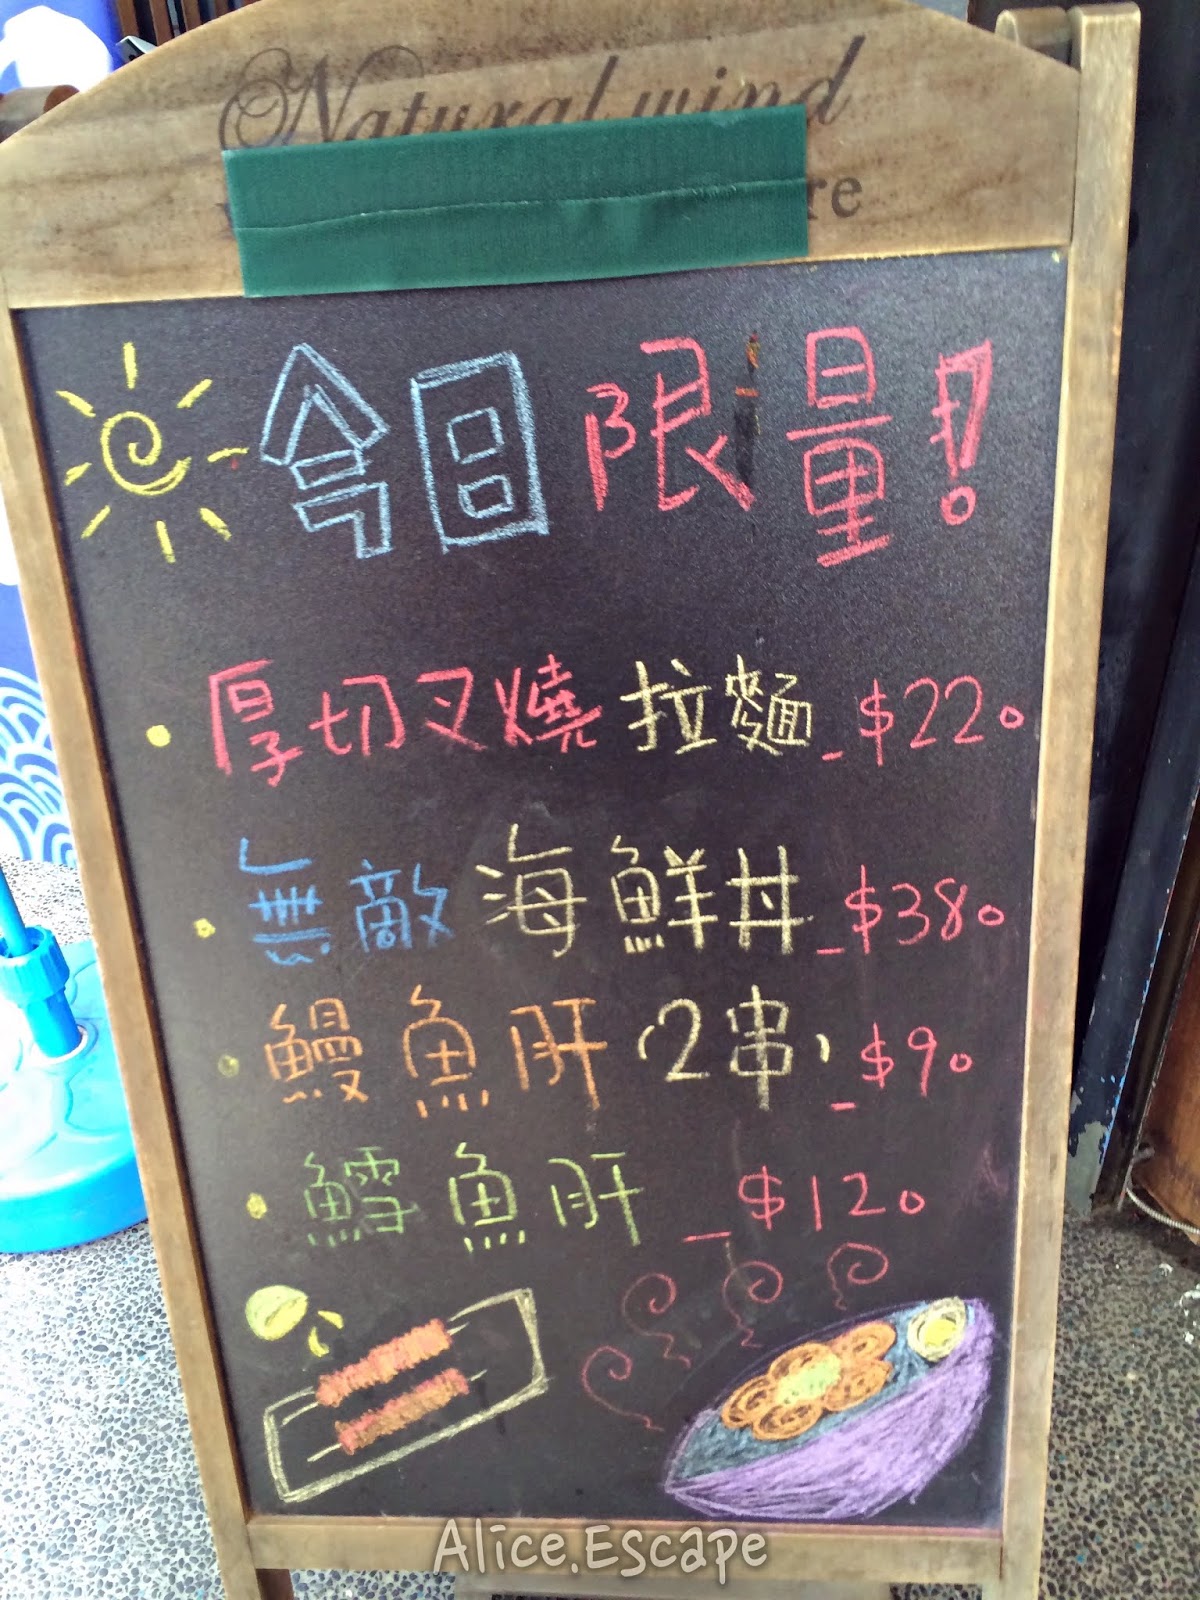 Natural wind
re
今日限量!
• 厚切叉燒拉麵 - $220
• 無敵海鮮丼 - $380
• 鰻魚肝(2串) - $90
• 鱈魚肝 - $120
Alice.Escape